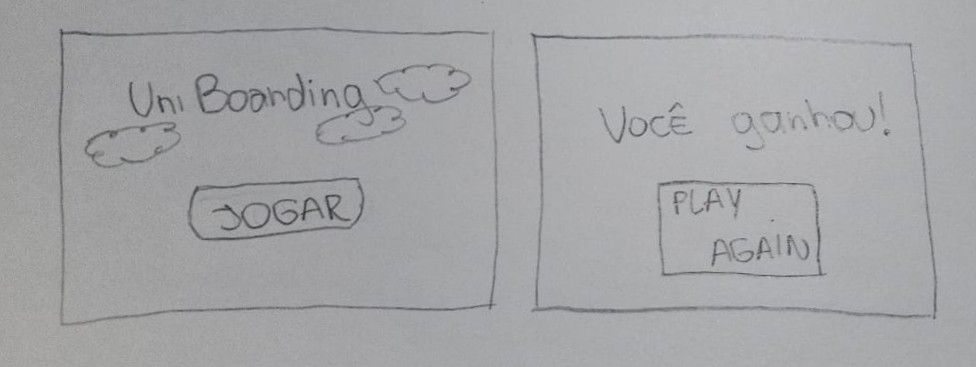 Uni Boarding
JOGAR
Você ganhou!
PLAY
AGAIN